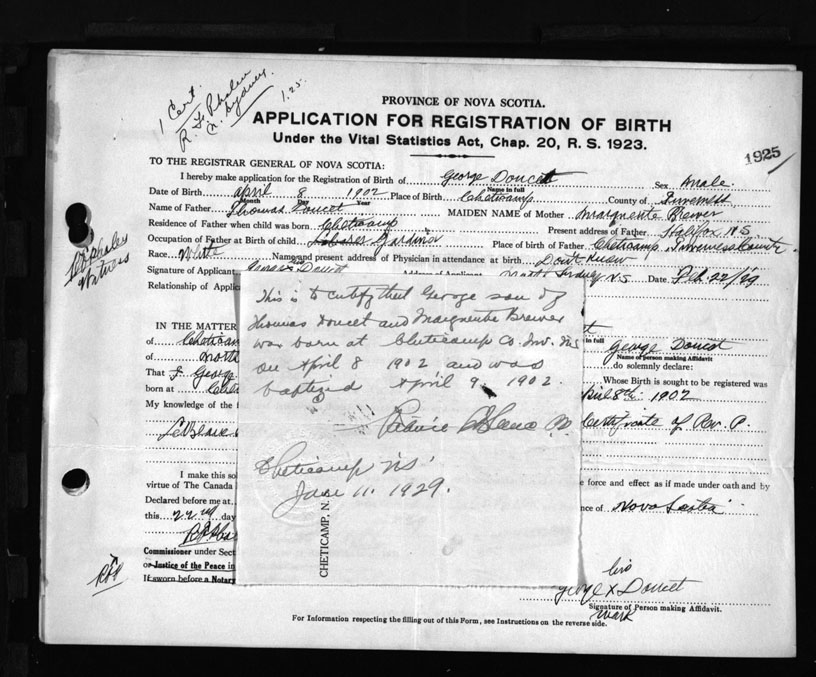 1 Cert.
R. F. Phalen
N. Sydney
1.25
PROVINCE OF NOVA SCOTIA.
APPLICATION FOR REGISTRATION OF BIRTH
Under the Vital Statistics Act, Chap. 20, R. S. 1923.
1925
TO THE REGISTRAR GENERAL OF NOVA SCOTIA:
I hereby make application for the Registration of Birth of George Doucet Sex Male.
Name in full
Date of Birth April 8 1902 Place of Birth Cheticamp County of Inverness
Month Day Year
Name of Father Thomas Doucet MAIDEN NAME of Mother Marguerite Brewer
Residence of Father when child was born Cheticamp Present address of Father Halifax N S
Occupation of Father at Birth of child Place of birth of Father Cheticamp Inverness County
Race White Name and present address of Physician in attendance at birth Dont Know
Signature of Applicant George Doucet Address of Applicant North Sydney N.S Date Feb. 22/29
Relationship of Applicant
Witness
This is to certify that George son of
Thomas Doucet and Marguerite Brewer
was born at Cheticamp Co. Inv. NS
on April 8 1902 and was
baptized April 9, 1902.
Cheticamp NS
11. 1929.
CHETICAMP, N.
IN THE MATTER
of Cheticam
of North
That I George
born at
My knowledge of the
I make this so
virtue of The Canada
Declared before me at
this 22nd day
Commissioner under Sect
or Justice of the Peace in
If sworn before a Notary
in full
George Doucet
Name of person making Affidavit
do solemnly declare:
Whose Birth is sought to be registered was
pril 8th 1902
Certificate of Rev. P.
e force and effect as if made under oath and by
nce of Nova Scotia
his
George x Doucet
Signature of Person making Affidavit.
mark
For Information respecting the filling out of this Form, see Instructions on the reverse side.